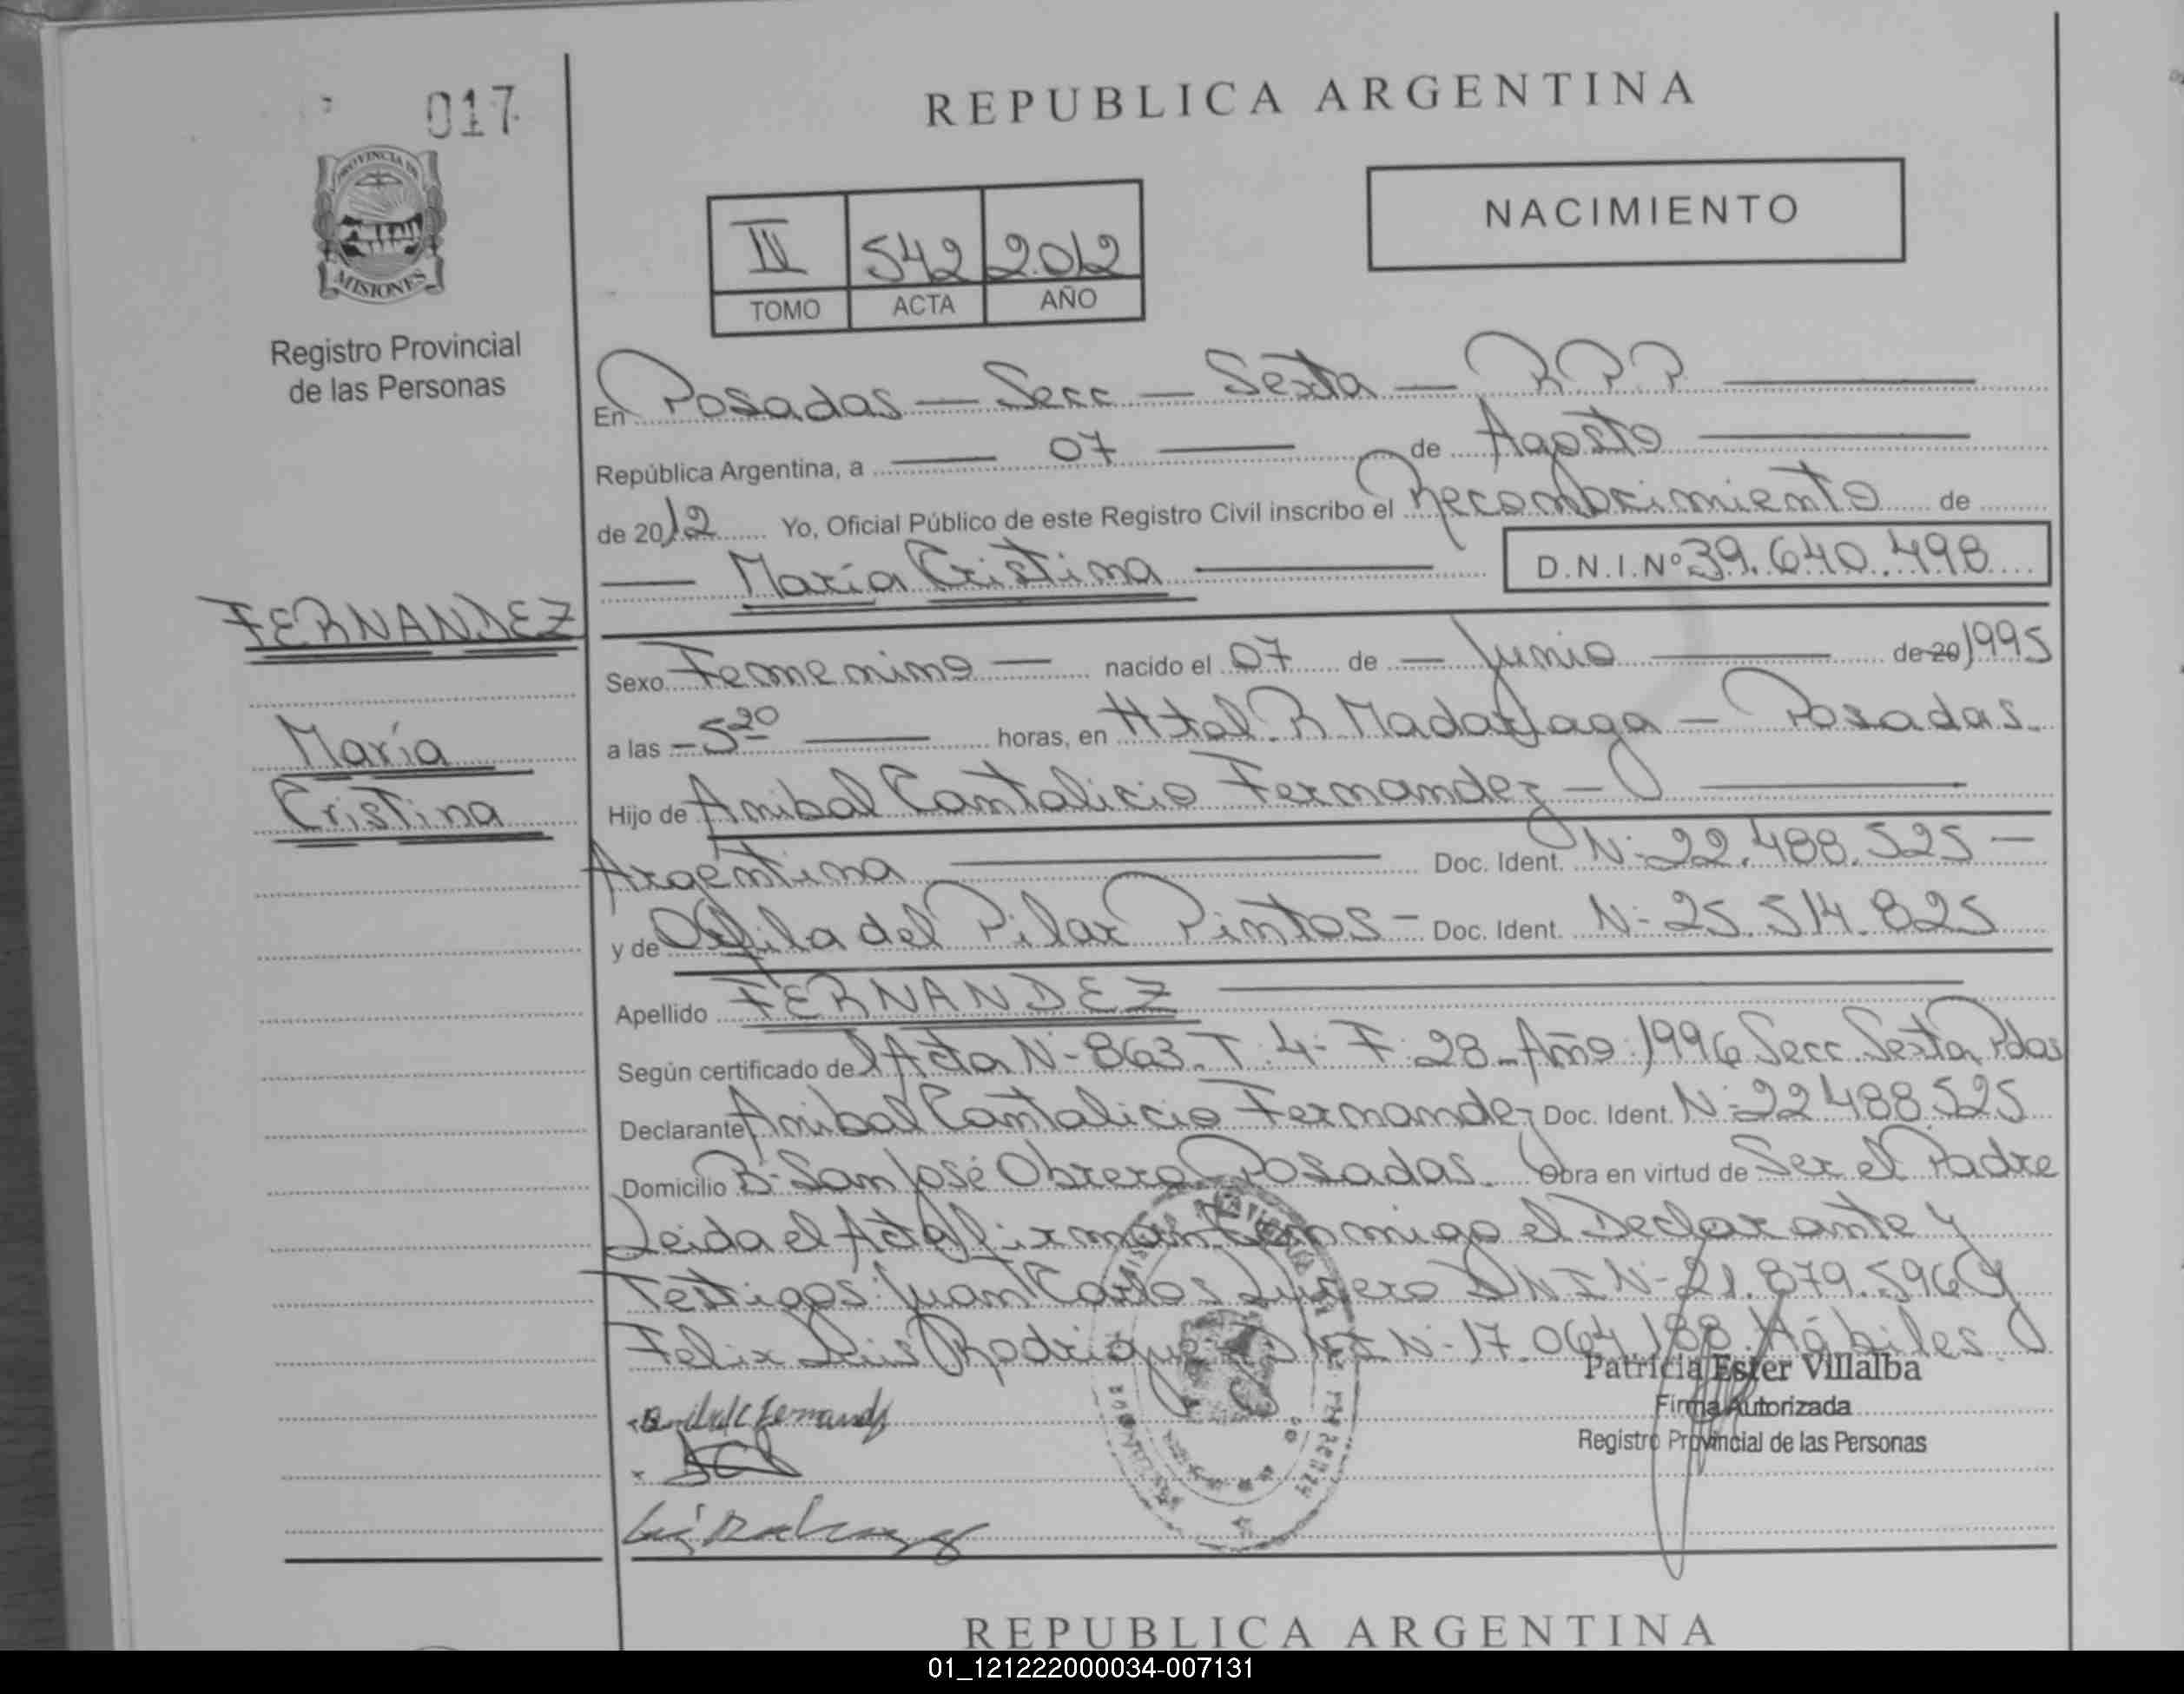 017
REPUBLICA ARGENTINA
PROVINCIA DE
MISIONES
Registro Provincial
de las Personas
NACIMIENTO
542 2012
TOMO ACTA AÑO
En Posadas — Secc — Sexta — R P P
República Argentina, a 07 de Agosto
de 2012 Yo, Oficial Público de este Registro Civil inscribo el Reconocimiento de
María Cristina D.N.I.Nº 39.640.498
FERNANDEZ
María
Cristina
Sexo Femenino — nacido el 07 de — Junio de 20 1995
a las — 5 20 horas, en Htal. R Madariaga — Posadas.
Hijo de Anibal Cantalicio Fernandez —
Argentina Doc. Ident. N: 22.488.525 —
y de del Pilar Pintos — Doc. Ident. N- 25.514.825
Apellido FERNANDEZ
Según certificado de l Acta N- 863. T. 4- F. 28 - Año: 1996 Secc. Sexta Pdas
Declarante Anibal Cantalicio Fernandez Doc. Ident. N- 22 488.525
Domicilio B- San José Obrero Posadas. Obra en virtud de Ser el Padre
Leida el Acta firman conmigo el Declarante y
Testigos: Juan Carlos DNI N- 21.879.596 y
Felix Luis Rodriguez DNI N- 17.064.188 Hábiles.
Patricia Ester Villalba
Firma Autorizada
Registro Provincial de las Personas
REPUBLICA ARGENTINA
01_121222000034-007131